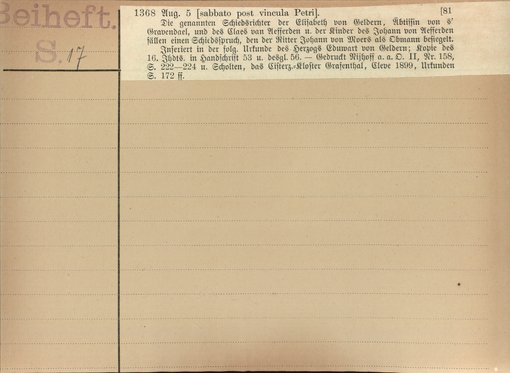 Beiheft.
S. 17
1368 Aug. 5 [sabbato post vincula Petri]. [81
Die genannten Schiedsrichter der Elisabeth von Geldern, Äbtissin von s'
Gravendael, und des Claes van Aefferden u. der Kinder des Johann von Aefferden
fällen einen Schiedsspruch, den der Ritter Johann von Moers als Obmann besiegelt.
Inseriert in der folg. Urkunde des Herzogs Eduwart von Geldern; Kopie des
16. Jhdts. in Handschrift 53 u. desgl. 56. — Gedruckt Nijhoff a. a. O. II, Nr. 158,
S. 222—224 u. Scholten, das Cisterz.-Kloster Grafenthal, Cleve 1899, Urkunden
S. 172 ff.